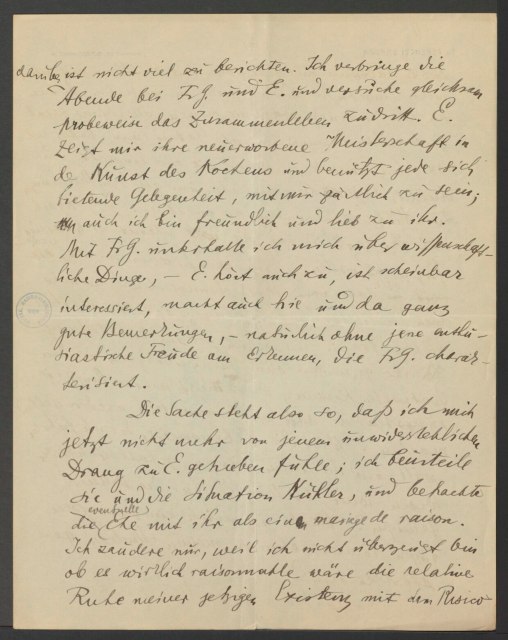 darüber ist nicht viel zu berichten. Ich verbringe die
Abende bei Fr G. und E. und versuche gleichsam
probeweise das Zusammenleben zu dritt. E.
zeigt mir ihre neuerworbene Meisterschaft in
de Kunst des Kochens und benützt jede sich
bietende Gelegenheit, mit mir zärtlich zu sein;
auch ich bin freundlich und lieb zu ihr.
Mit Fr G. unterhalte ich mich über wissenschaft-
liche Dinge, – E. hört auch zu, ist scheinbar
interessiert, macht auch hie und da ganz
gute Bemerkungen, – natürlich ohne jene enthu-
siastische Freude am Erkennen, die Fr G. charak-
terisiert.
Die Sache steht also so, daß ich mich
jetzt nicht mehr von jenem unwiderstehlichen
Drang zu E. getrieben fühle; ich beurteile
sie und die Situation kühler, und betrachte
die eventuelle Ehe mit ihr als eine mariage de raison.
Ich zaudere nur, weil ich nicht überzeugt bin
ob es wirklich raisonnable wäre die relative
Ruhe meiner jetzigen Existenz mit dem Risico